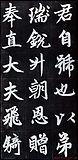 君自獅也以弟
瑞銳外朝恩贈
奉直大夫飛騎